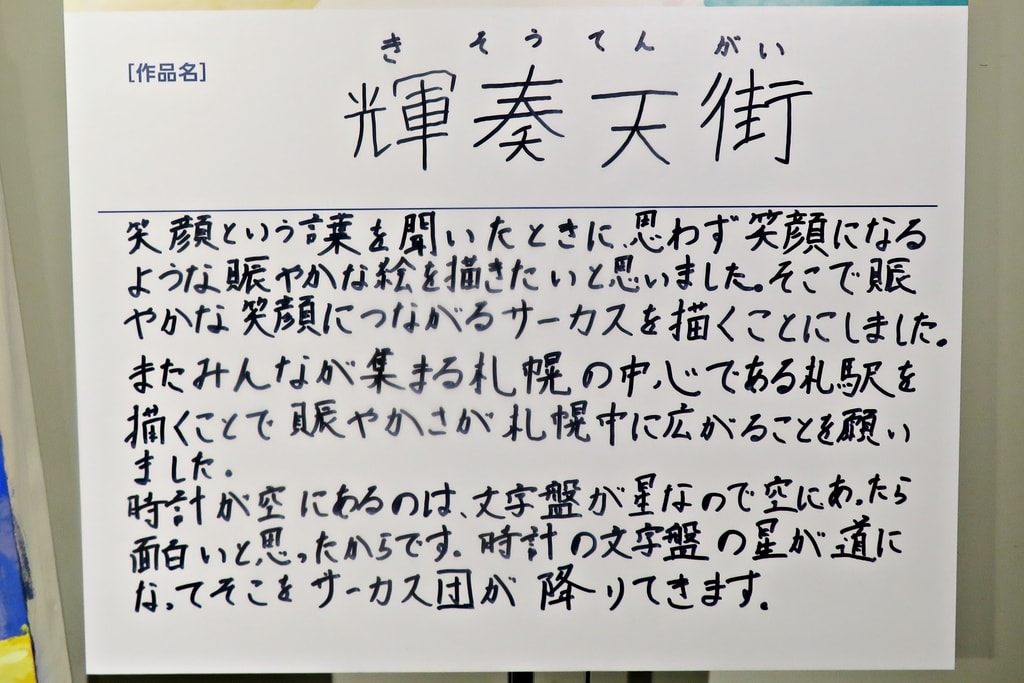 きそうてんがい
[作品名]
輝奏天街
笑顔という言葉を聞いたときに、思わず笑顔になる
ような賑やかな絵を描きたいと思いました。そこで賑
やかな笑顔につながるサーカスを描くことにしました。
またみんなが集まる札幌の中心である札駅を
描くことで賑やかさが札幌中に広がることを願い
ました。
時計が空にあるのは、文字盤が星なので空にあったら
面白いと思ったからです。時計の文字盤の星が道に
なってそこをサーカス団が降りてきます。